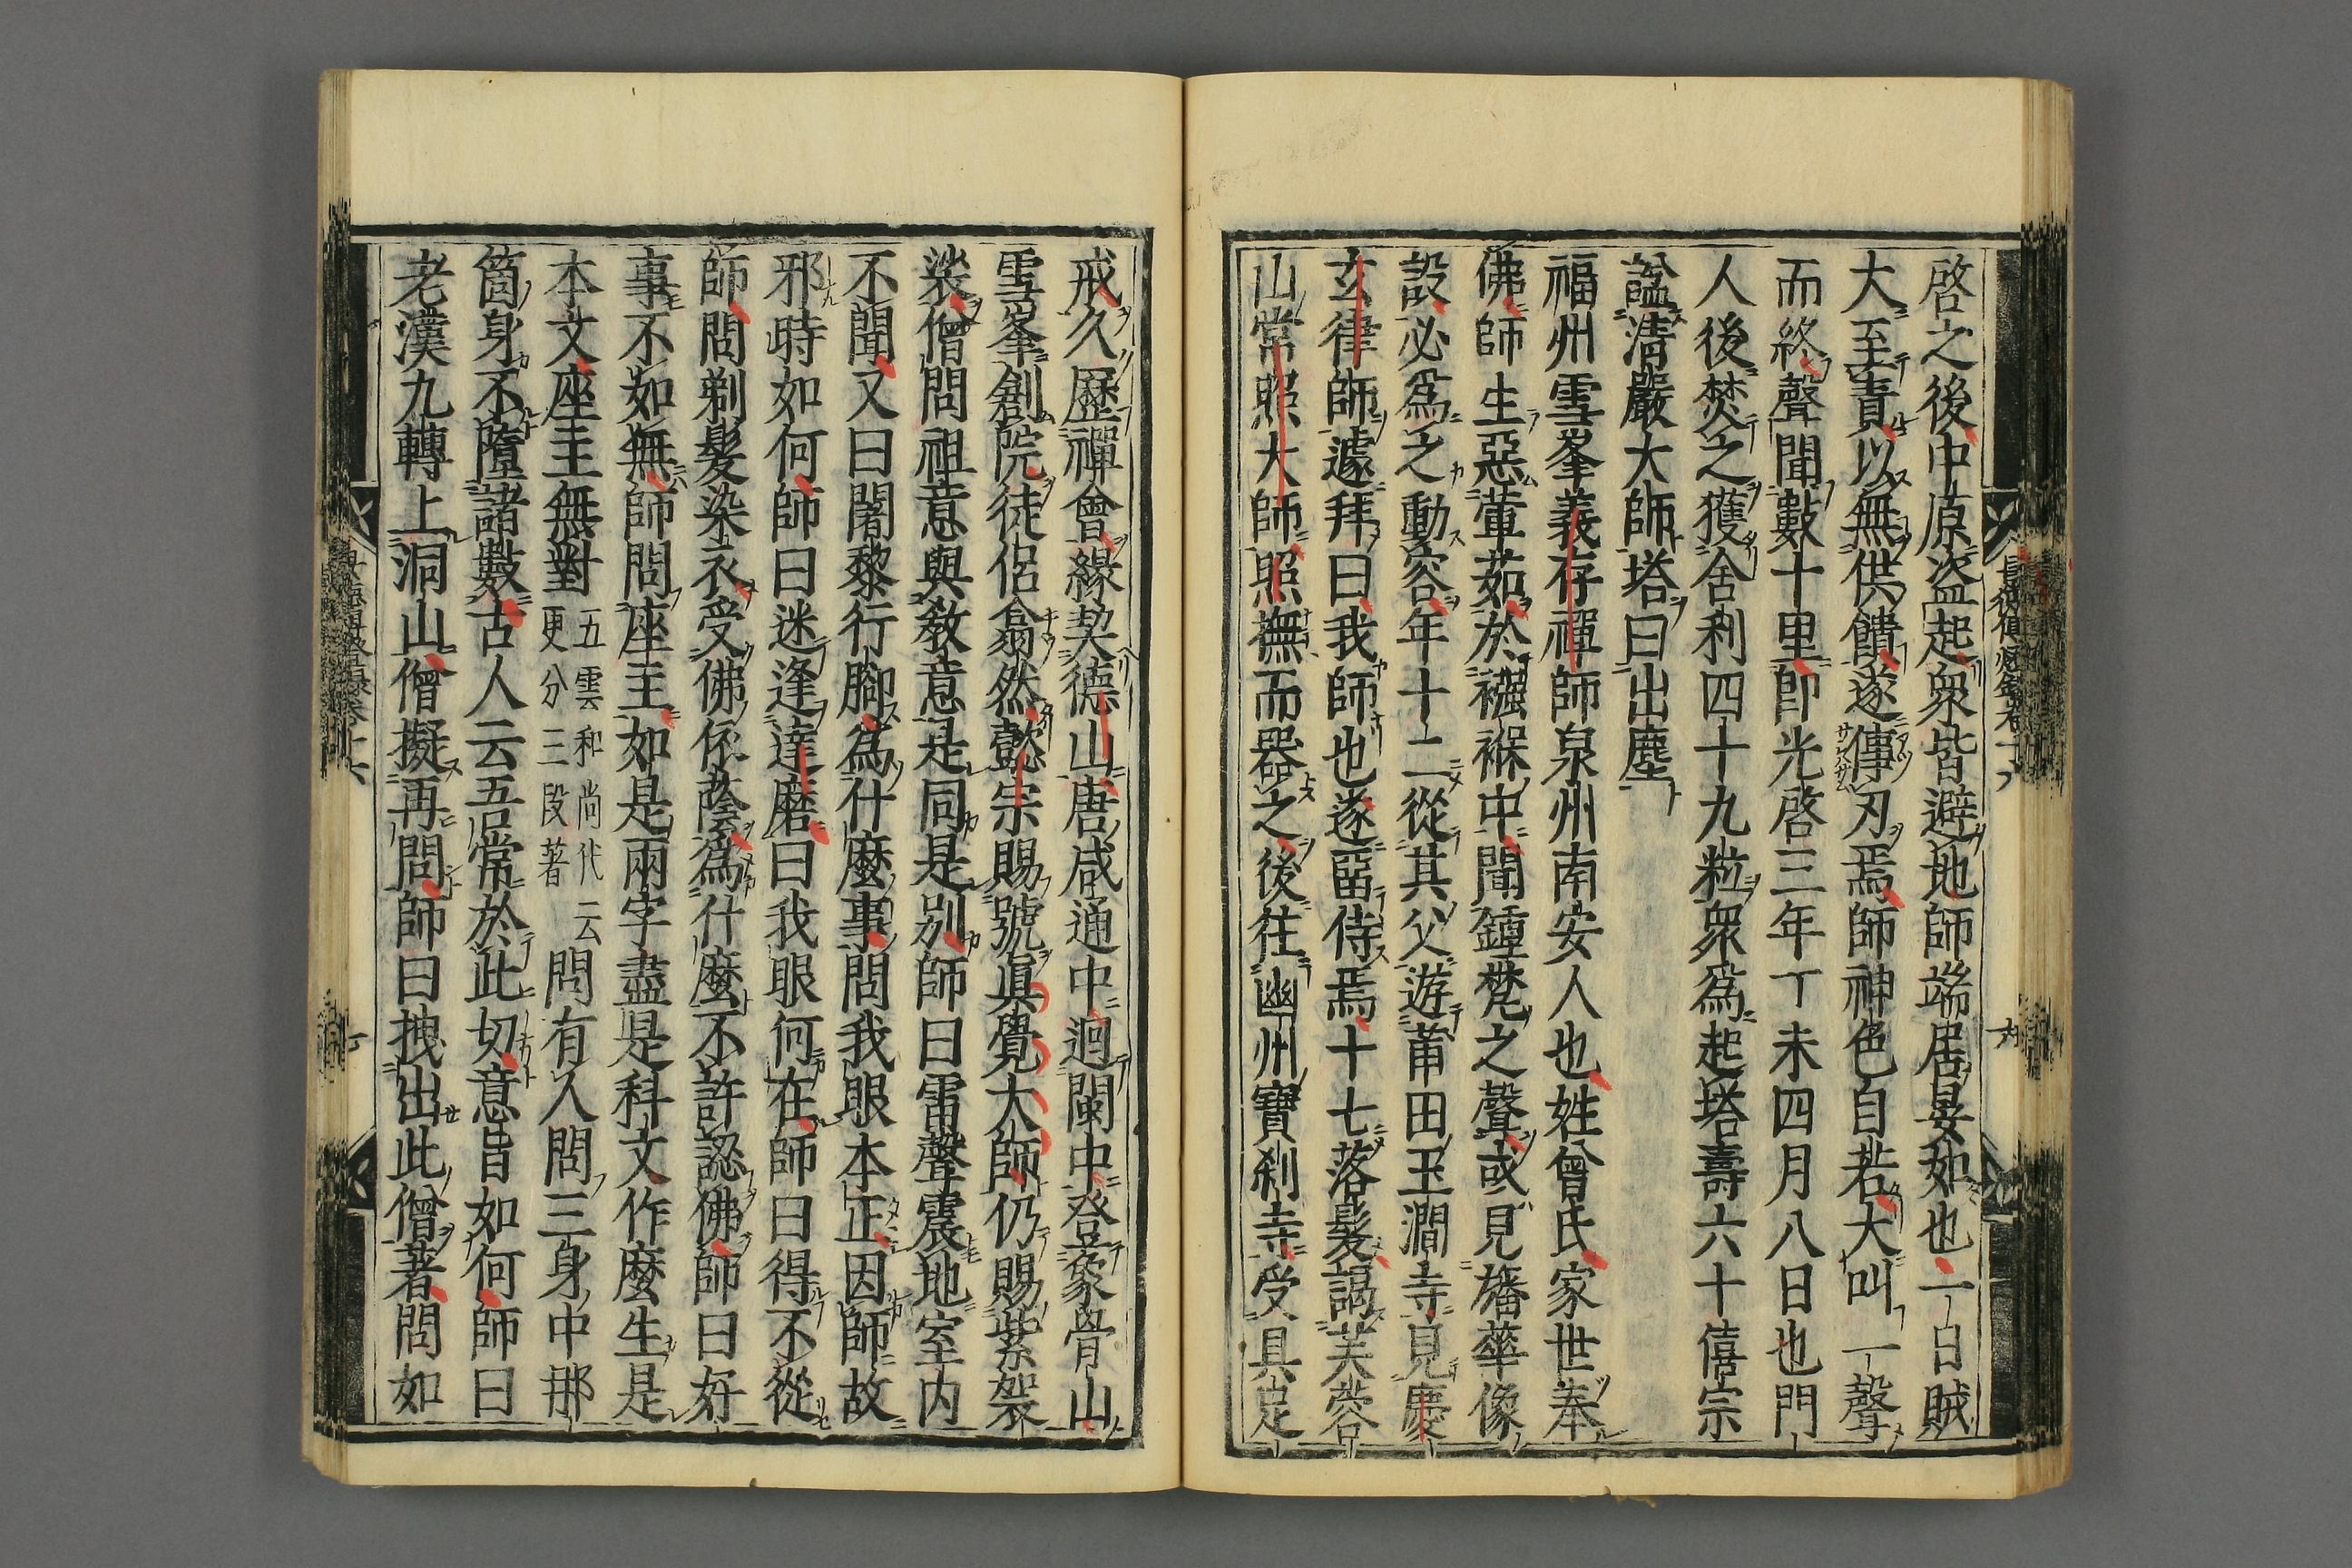 啓之後中原盜起衆皆避地師端居晏如也一日賊
大至責以無供饋遂傳刃焉師神色自若大叫一聲
而終聲聞數十里卽光啓三年丁未四月八日也門
人後焚之獲舍利四十九粒衆爲起塔壽六十僖宗
諡淸嚴大師塔曰出塵
福州雪峯義存禪師泉州南安人也姓曾氏家世奉
佛師生惡葷茹於襁褓中聞鍾梵之聲或見旛華像
設必爲之動容年十二從其父遊莆田玉澗寺見慶
玄律師遽拜曰我師也遂畱侍焉十七落髮謁芙蓉
山常照大師照撫而器之後往幽州寶刹寺受具足
戒久歷禪會緣契德山唐咸通中迴閩中登象骨山
雪峯創院徒侶翕然懿宗賜號眞覺大師仍賜紫袈
裟僧問祖意與敎意是同是別師曰雷聲震地室內
不聞又曰闍黎行腳爲什麼事問我眼本正因師故
邪時如何師曰迷逢達磨曰我眼何在師曰得不從
師問剃髮染衣受佛依蔭爲什麼不許認佛師曰好
事不如無師問座主如是兩字盡是科文作麼生是
本文座主無對五雲和尚代云更分三段著問有人問三身中那
箇身不墮諸數古人云吾常於此切意旨如何師曰
老漢九轉上洞山僧擬再問師曰拽出此僧著問如